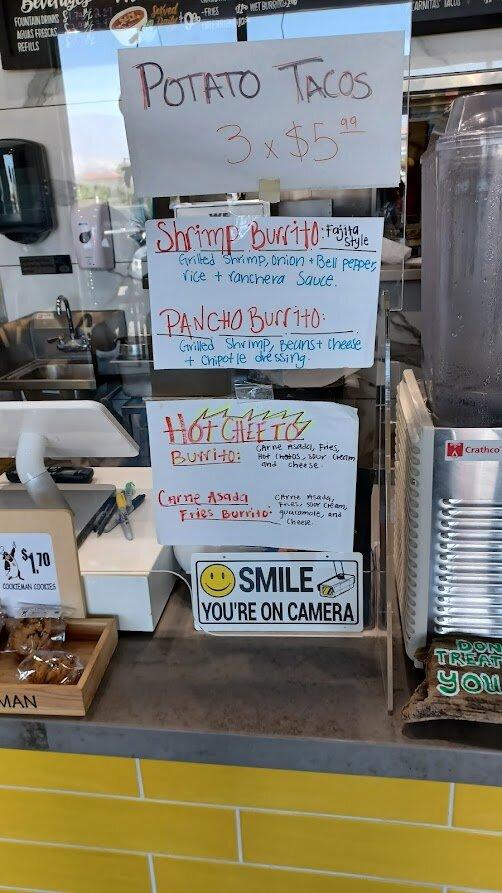 Beverages
FOUNTAIN DRINKS
AGUAS FRESCAS
REFILLS
Served
-FRIES
WET BURRITO
CARNITAS TACOS
POTATO TACOS
3 x $5 99
Shrimp Burrito: Fajita style
Grilled Shrimp, Onion + Bell pepper,
rice + ranchera Sauce.
PANCHO Burrito:
Grilled Shrimp, Beans + cheese
+ Chipotle dressing.
HOT CHEETO
Burrito: Carne Asada, Fries,
Hot Chetos, sour cream
and cheese
Carne Asada
Fries Burrito:
Carne Asada,
Fries, sour cream,
guacamole, and
cheese.
Crathco
$1.70
COOKIEMAN COOKIES
SMILE
YOU'RE ON CAMERA
MAN
DON
TREAT
YOU